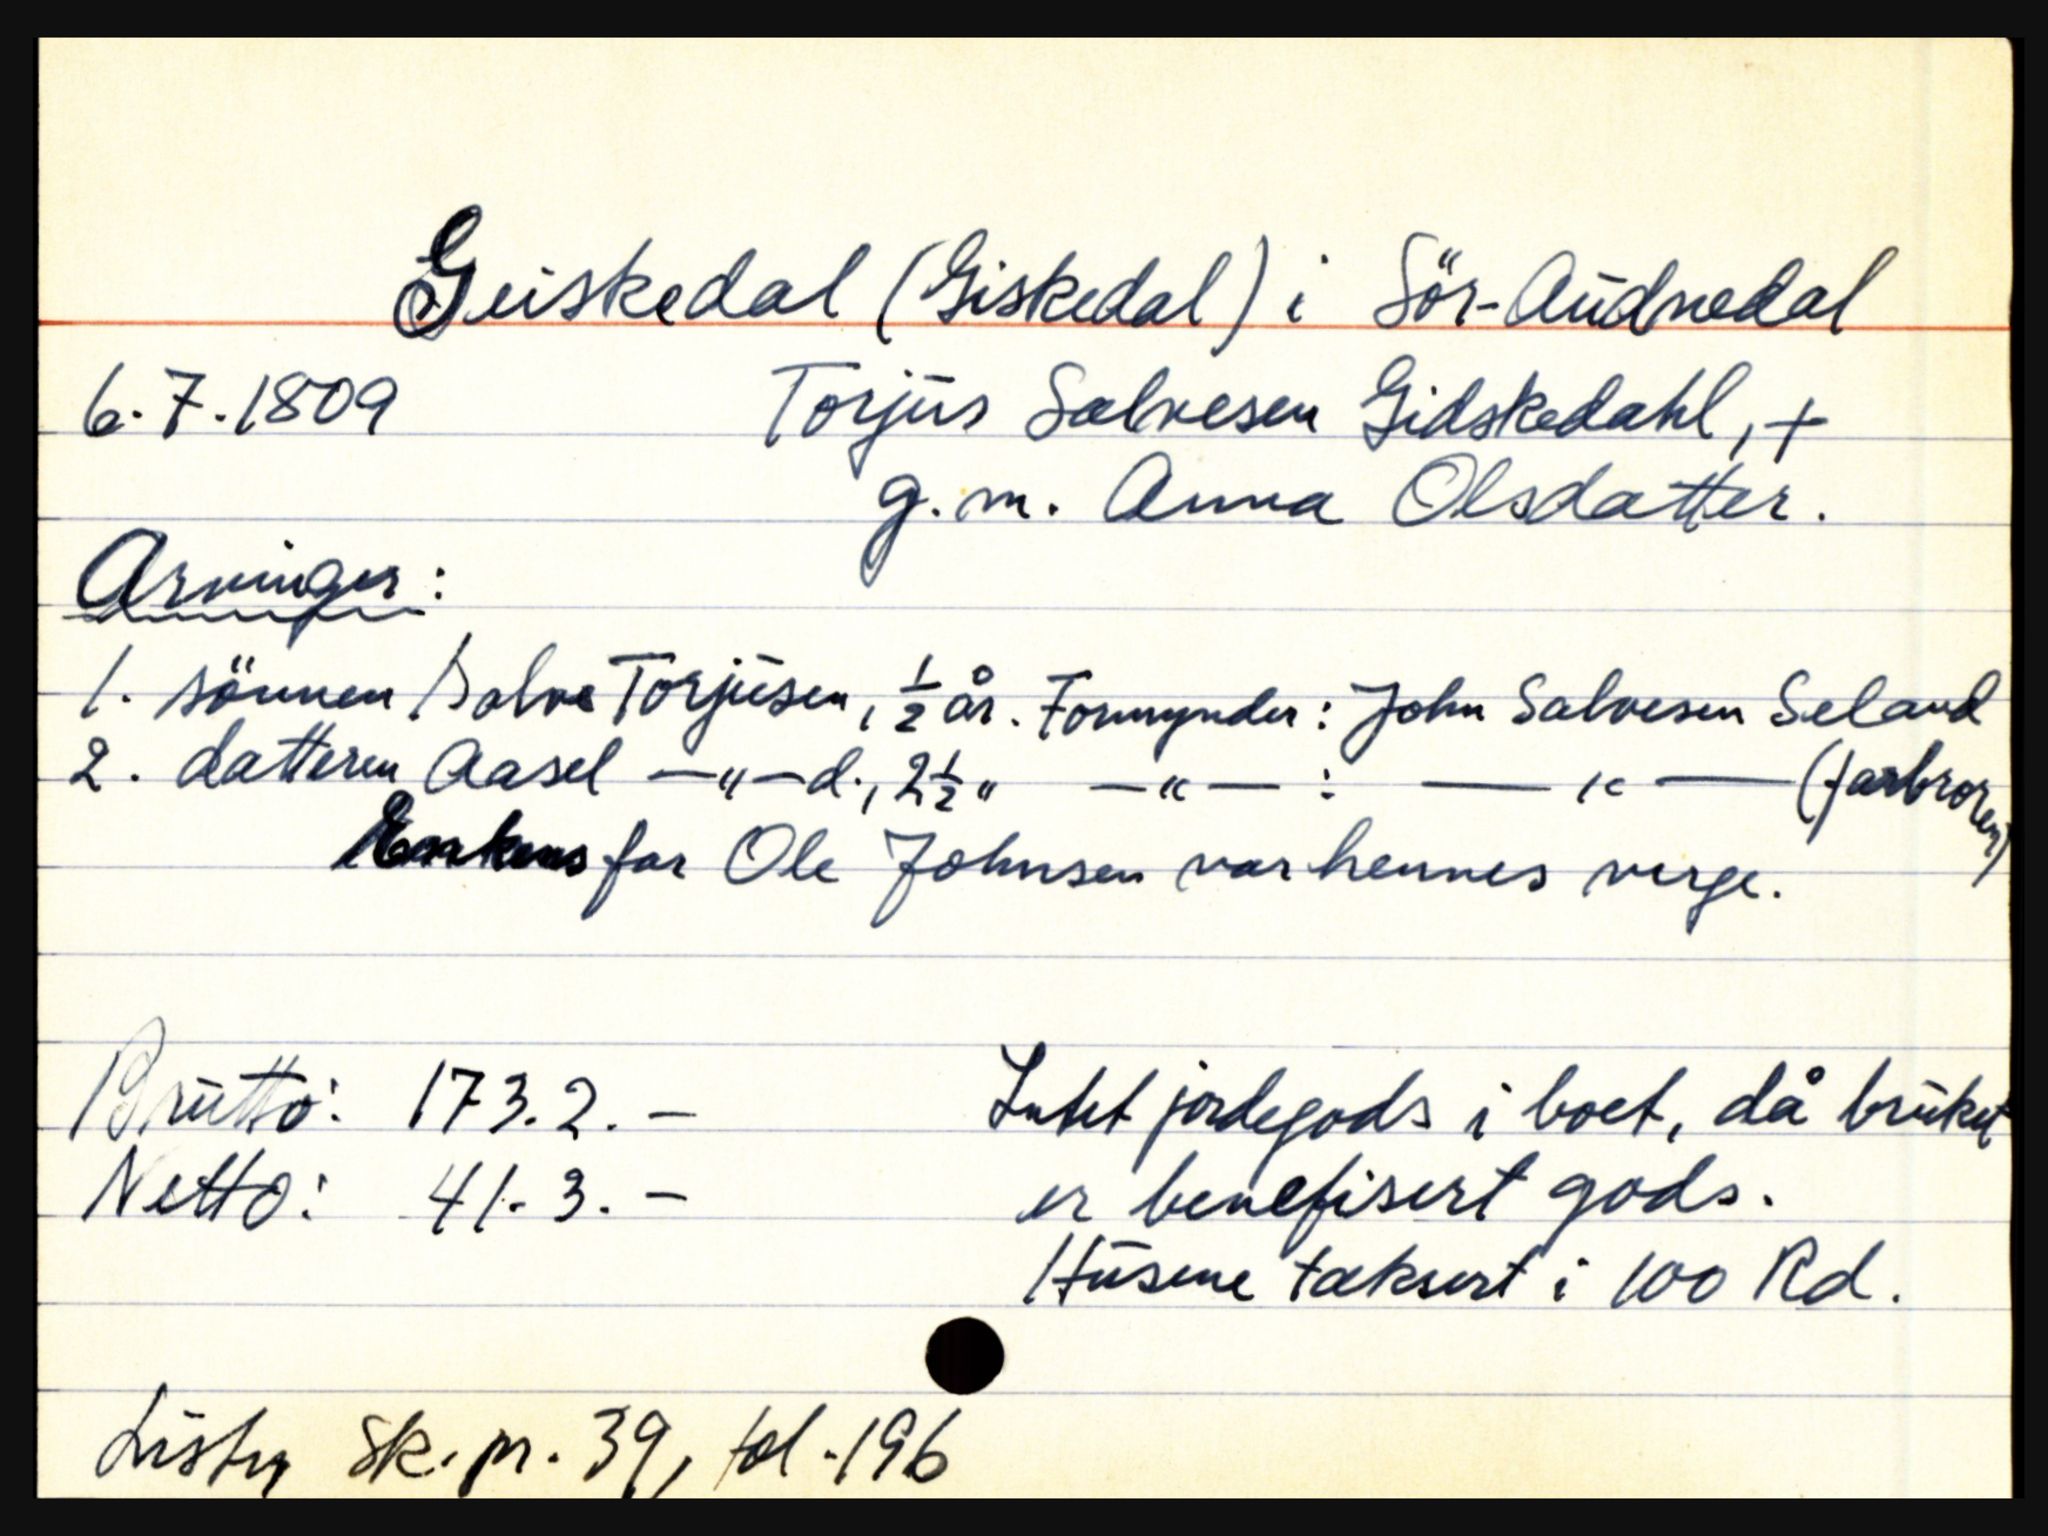 Geiskedal (Giskedal) i Sör-Audnedal
6.7.1809 Torjus Salvesen Gidskedahl, +
g.m. Anna Olsdatter.
Arvinger:
1. sönnen Salve Torjusen, ½ år. Formynder: John Salvesen Seland
2. datteren Aasel —"—d., 2½ " —"— : —"— (farbroren)
Enkens far Ole Johnsen var hennes verge.
Brutto: 173.2.— Intet jordegods i boet, då bruket
Netto: 41.3.— er benefisert gods.
Husene taksert i 100 Rd.
Lister sk.pr. 39, fol. 196